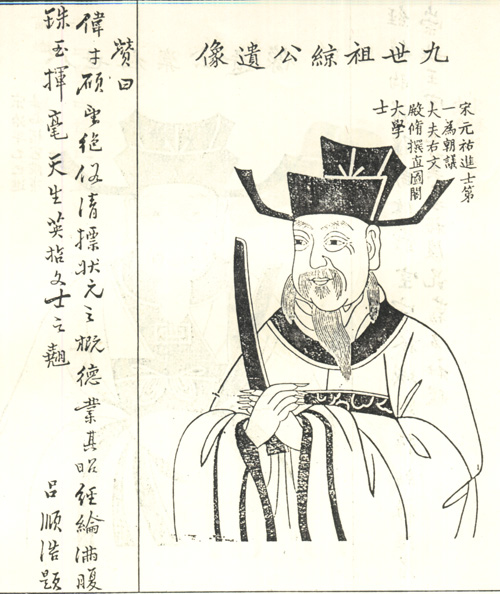 九世祖公遺像
宋元祐進士第
一為朝議
大夫右文
殿脩撰直國閣
大學
士
讚曰
偉才碩望絕俗清摽狀元之概德業其昭經綸滿腹
珠玉揮毫天生英哲文士之翹
呂順浩題